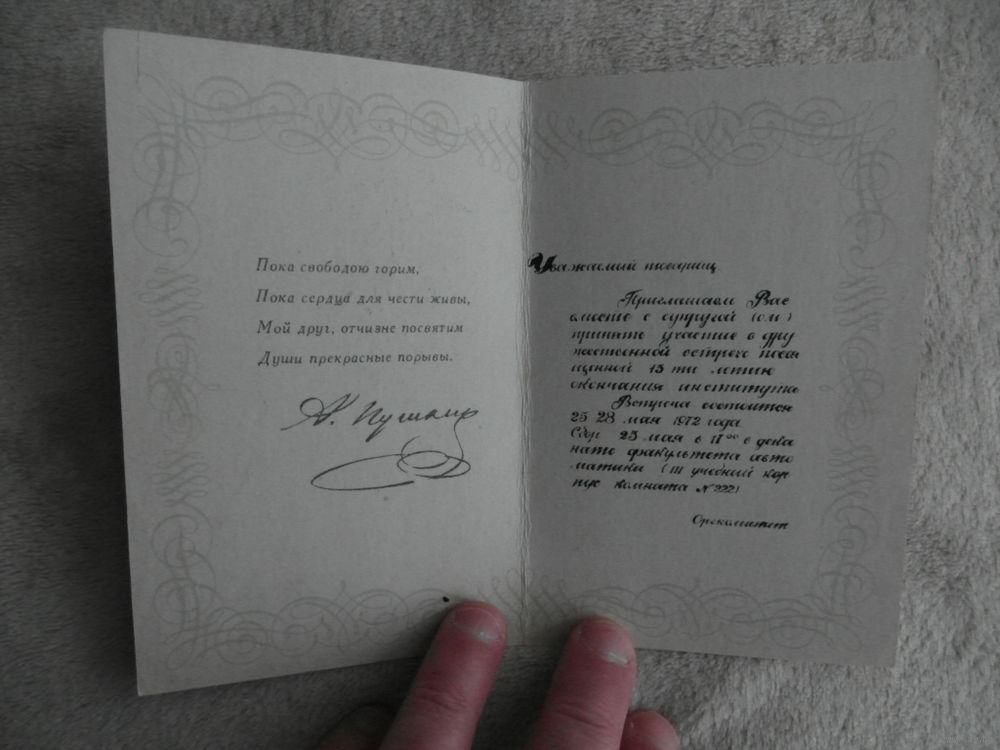 Пока свободою горим,
Пока сердца для чести живы,
Мой друг, отчизне посвятим
Души прекрасные порывы.
А. Пушкин
Уважаемый товарищ
Приглашаем Вас
вместе с супругой (ом)
принять участие в дру
жественной встрече посвя
щенной 15 ти летию
окончания института
Встреча состоится
25 28 мая 1972 года
Сбор 25 мая в 17 00 в дека
нате факультета авто
матики (III учебный кор
пус комната № 222)
Оргкомитет